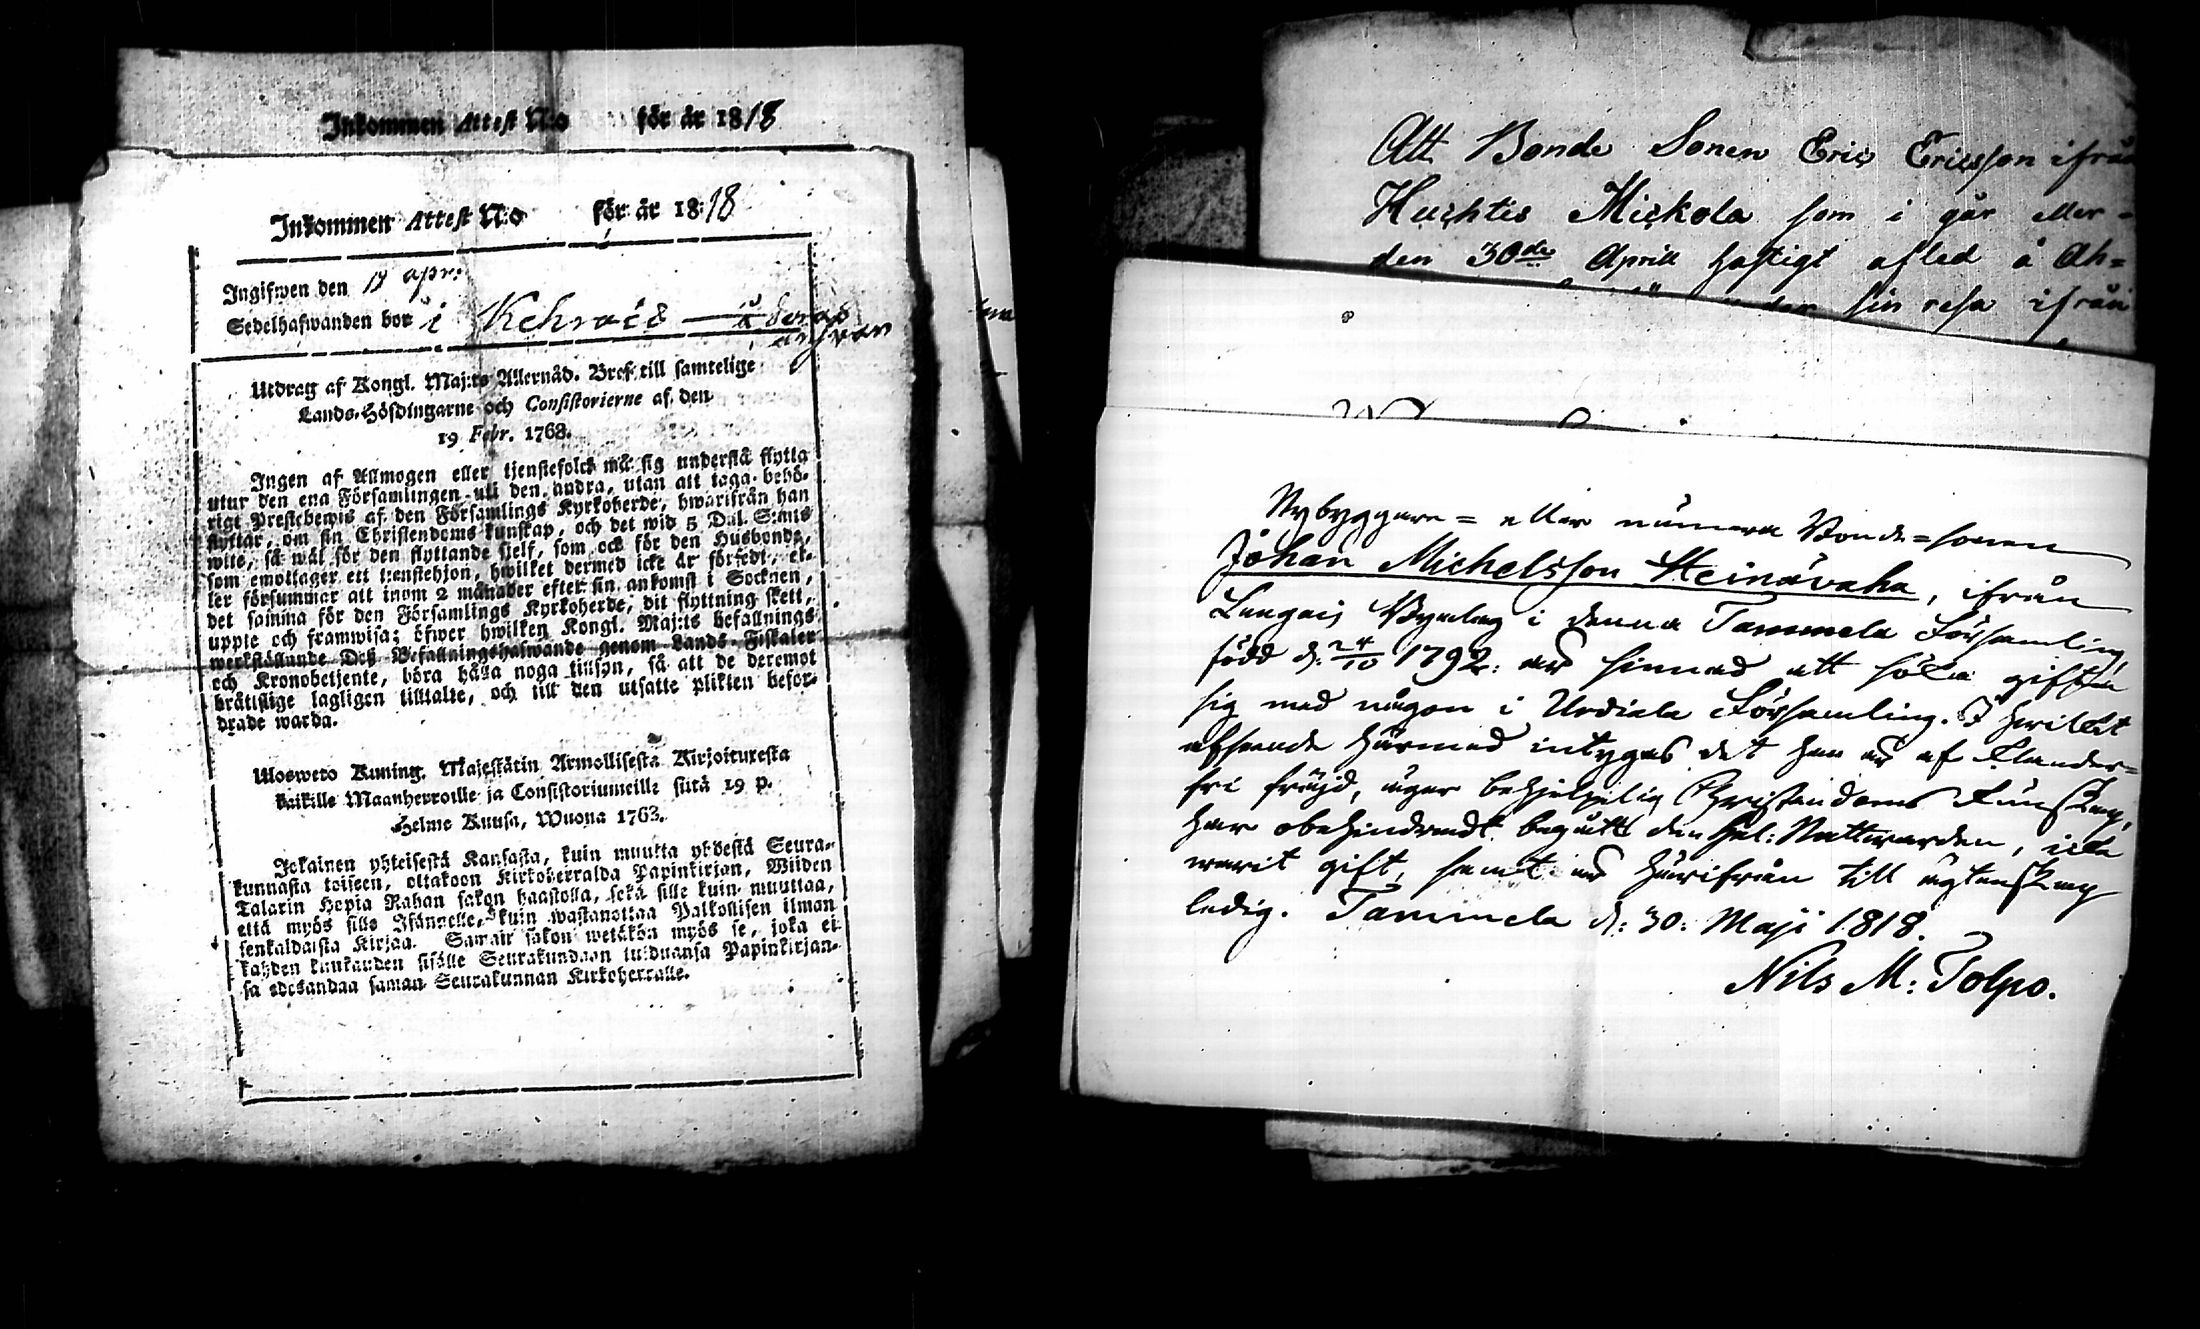 Inkommen Attest N:o för år 1818
Inkommen Attest N:o för år 1818
Ingifwen den 19 apr.
Sedelhafwanden bor i Kehrois
Utdrag af Kongl. Maj:ts Allernåd. Bref till samtelige
Lands-Höfdingarne och Consistorierne af den
19 Febr. 1768.
Ingen af Allmogen eller tjenstefolck må sig understå flytta
utur den ena Församlingen uti den andra, utan att taga behö-
rigt Prestebewis af den Församlings Kyrkoherde, hwarifrån han
flyttar, om sin Christendoms kunskap, och det wid 5 Dal. S:mts
wite, så wäl för den flyttande sjelf, som ock för den Husbonde,
som emottager ett tjenstehjon, hwilket dermed icke är försedt, el-
ler försummar att inom 2 månader efter sin ankomst i Socknen,
det samma för den Församlings Kyrkoherde, dit flyttning skett,
uppte och framwisa; öfwer hwilken Kongl. Maj:ts befallnings
werkställande Deß Befallningshafwande genom Lands-Fiskaler
och Kronobetjente, böra hålla noga tillsyn, så att de deremot
bråttslige lagligen tilltalte, och till den utsatte plikten befor-
drade warda.
Ulosweto Kuning. Majestätin Armollisesta Kirjoituxesta
kaikille Maanherroille ja Consistoriumeille siitä 19 p.
Helme Kuusa, Wuona 1763.
Jokainen yhteisestä Kansasta, kuin muutta yhdestä Seura-
kunnasta toiseen, ottakoon Kirkoherralda Papinkirjan, Wiiden
Talarin Hopia Rahan sakon haastolla, sekä sille kuin muuttaa,
että myös sille Isännelle, kuin wastanottaa Palkollisen ilman
senkaldaista Kirjaa. Saman sakon wetäkön myös se, joka ei
kahden kuukauden sisälle Seurakundaan tulduansa Papinkirjan-
sa edesandaa saman Seurakunnan Kirkoherralle.
Att Bonde Sonen Eric Ericsson ifrån
Huchtis Mickola som i går eller
den 30de April hastigt afled å Ah=
sin resa ifrån
Nybyggare= eller numera Bonde=sonen
Johan Michelsson Heinävaha, ifrån
Byalag i denna Tammela Församling,
född d: 24/10 1792: är sinnad att söka gifta
sig med någon i Urdiala Församling. I hvilket
afseende härmed intygas det han är af klander=
fri frejd, äger behjelpelig Christendoms kunskap,
har obehindradt begått den Hel: Nattvarden, icke
warit gift, samt är härifrån till ägtenskap
ledig. Tammela d: 30: Maji 1818.
Nils M: Tolpo.